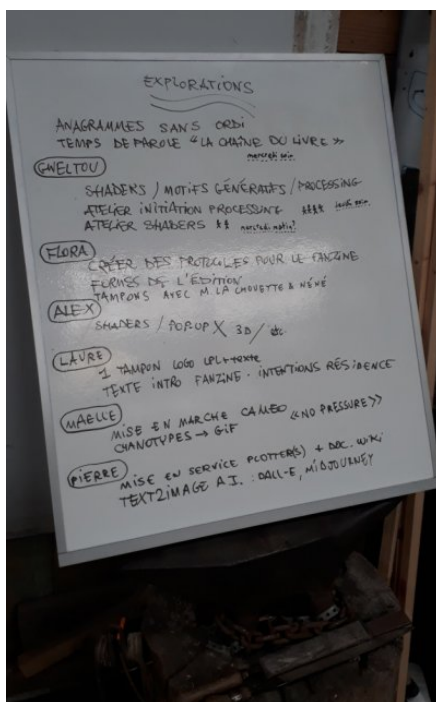 EXPLORATIONS
ANAGRAMMES SANS ORDI
TEMPS DE PAROLE "LA CHAÎNE DU LIVRE"
mercredi soir
GWELTOU
SHADERS / MOTIFS GÉNÉRATIFS / PROCESSING
ATELIER INITIATION PROCESSING **** jeudi soir
ATELIER SHADERS ** mercredi matin?
FLORA
CRÉER DES PROTOCOLES POUR LE FANZINE
FORMES DE L'ÉDITION
TAMPONS AVEC M LA CHOUETTE & NÉNÉ
ALEX
SHADERS / POP-UP X 3D / etc
LAURE
1 TAMPON LOGO LPL + texte
TEXTE INTRO FANZINE - INTENTIONS RÉSIDENCE
MAELLE
MISE EN MARCHE CAMEO «NO PRESSURE»
CYANOTYPES → GIF
PIERRE
MISE EN SERVICE PLOTTER(S) + DOC. WIKI
TEXT2IMAGE A.I. : DALL-E, MIDJOURNEY